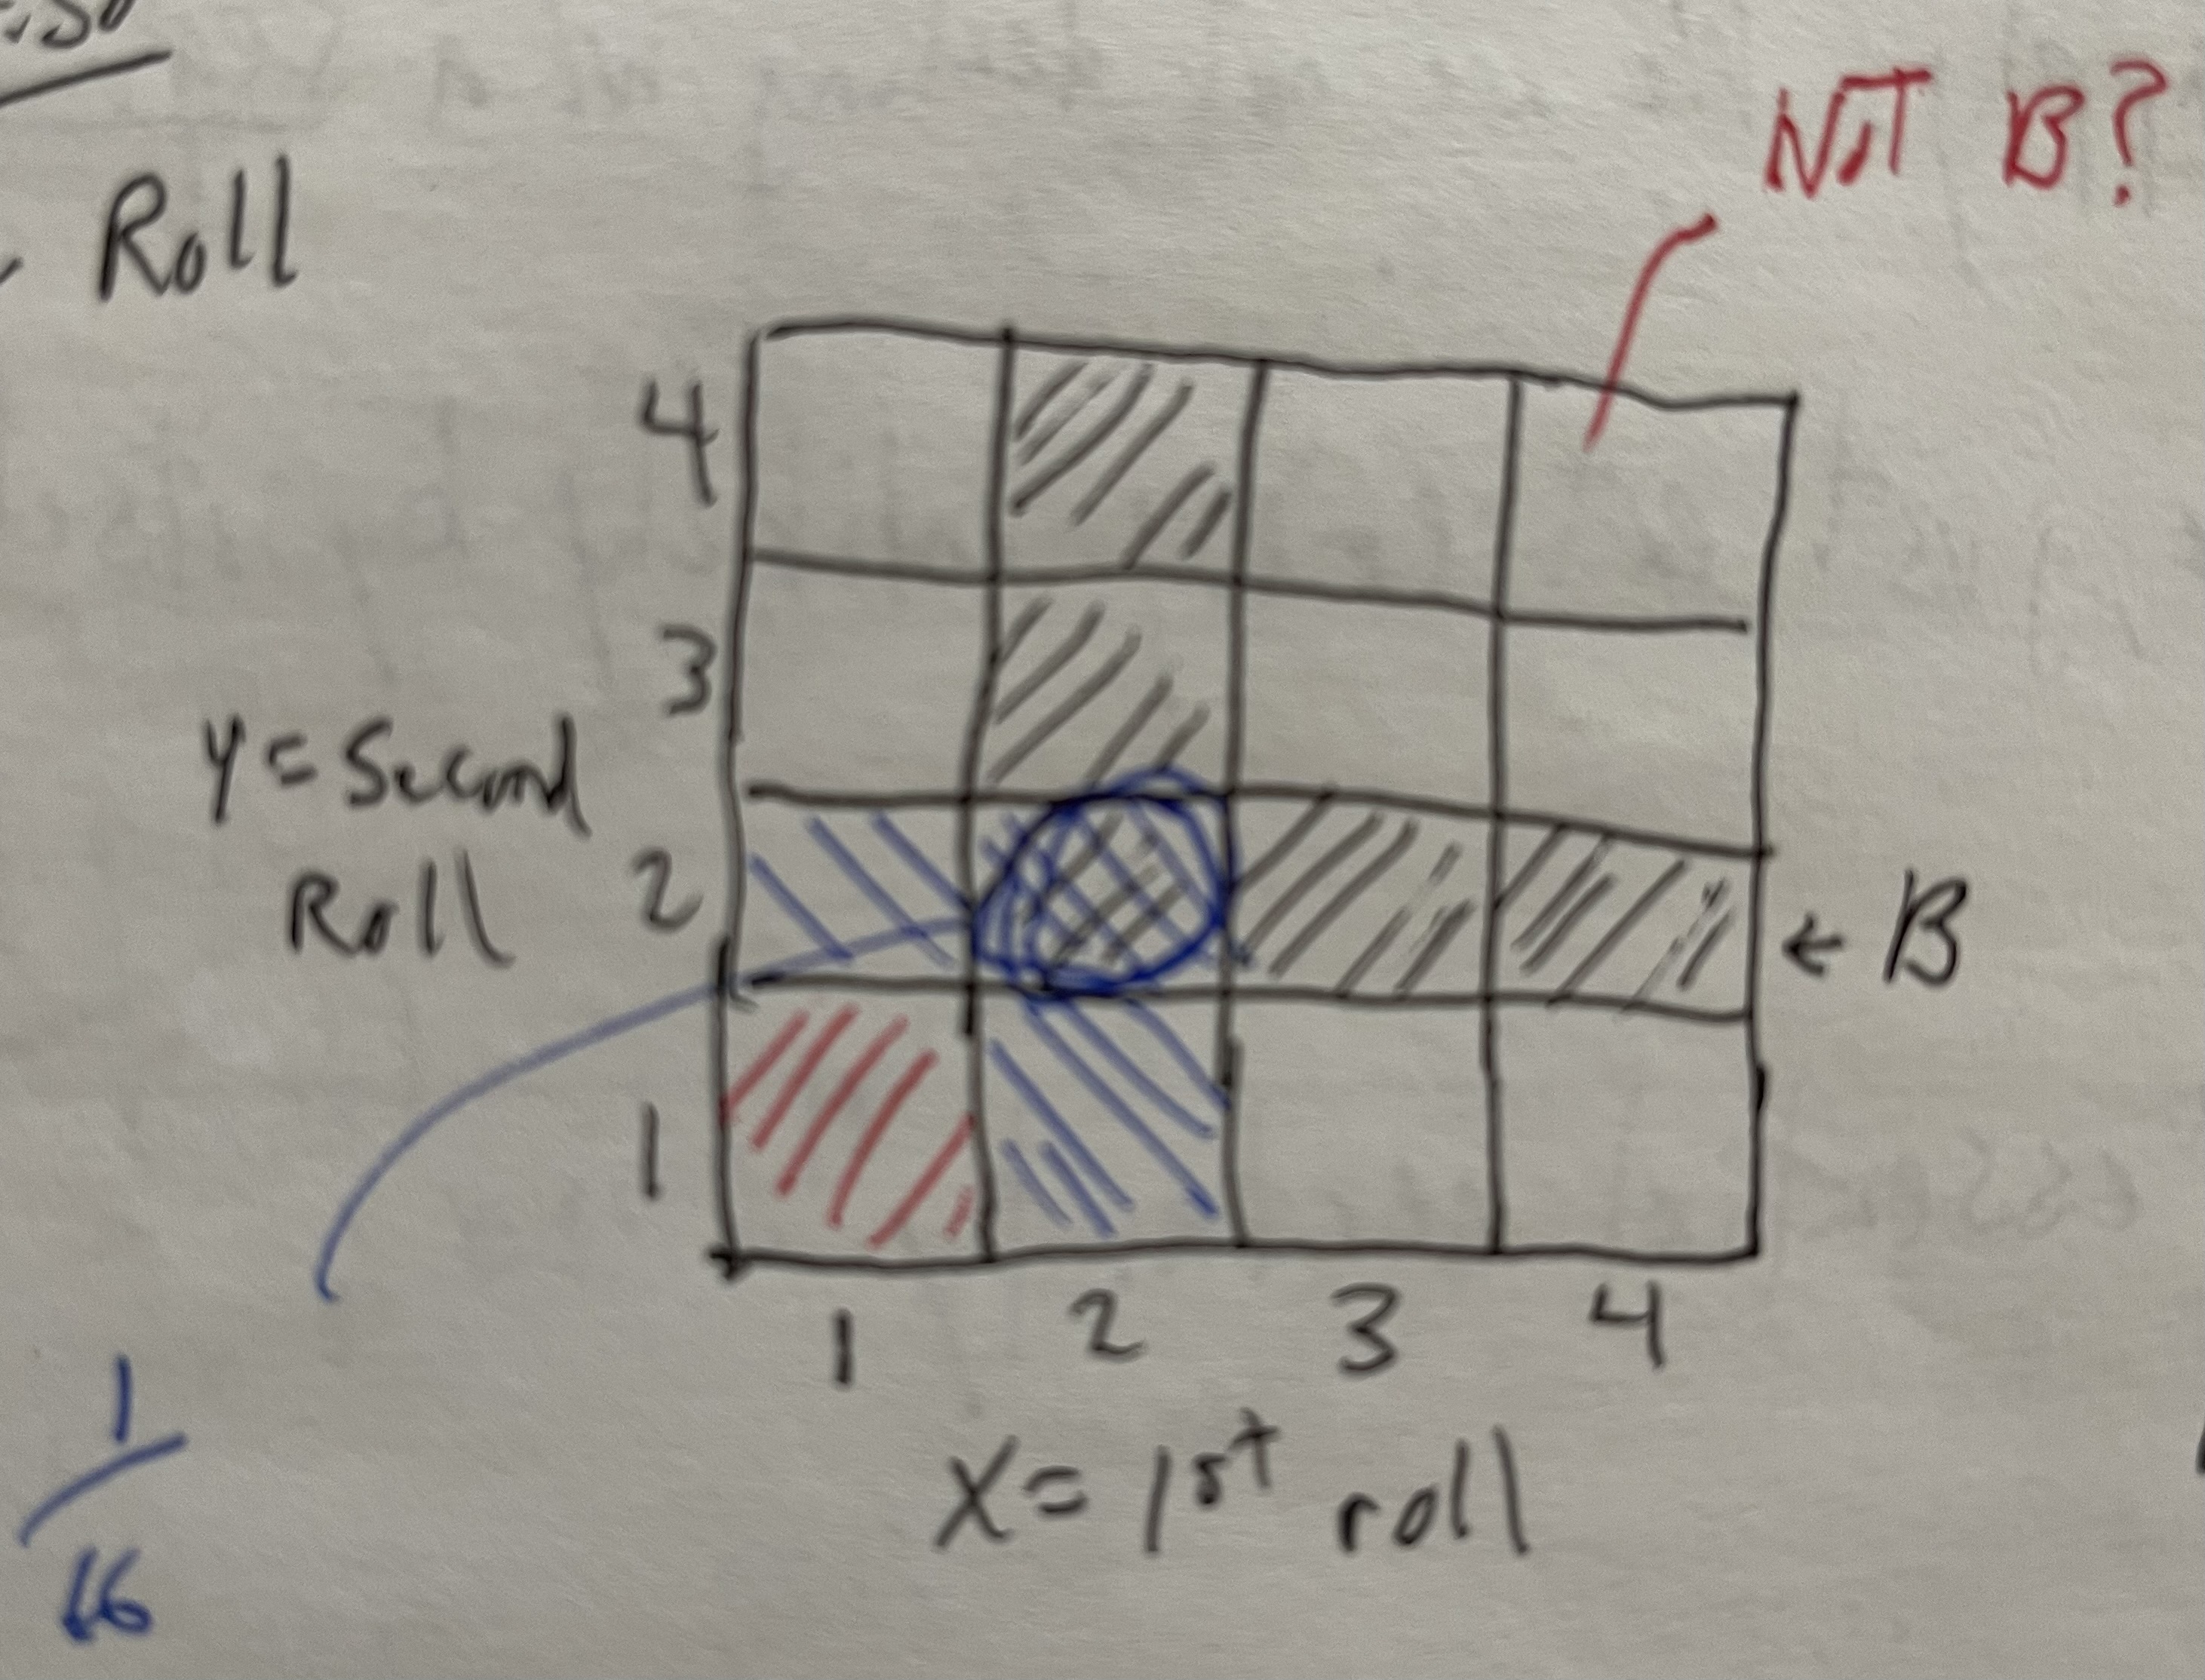 Roll
NOT B?
4
3
Y = Second
Roll
2
← B
1
1 2 3 4
X = 1st roll
1
16